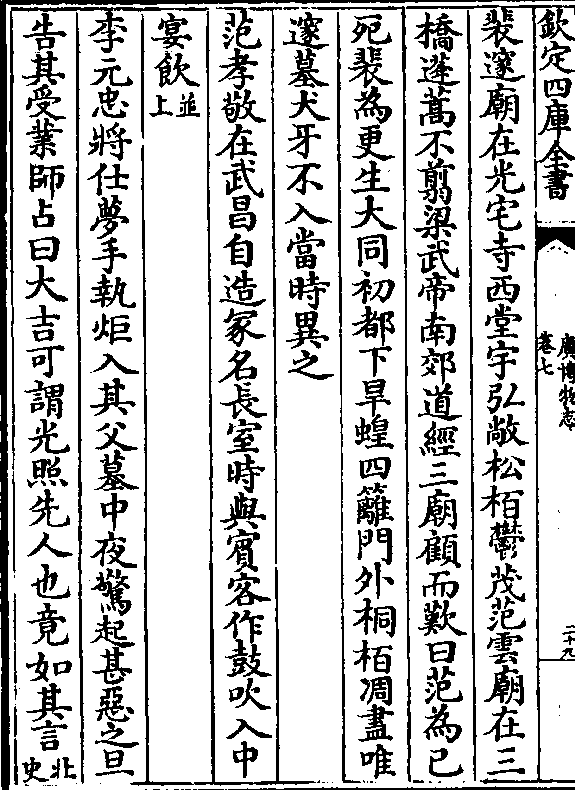 欽定四庫全書
廣博物志
卷七
二十九
裴邃廟在光宅寺西堂宇弘敞松栢鬱茂范雲廟在三
橋蓬蒿不翦梁武帝南郊道經三廟顧而歎曰范為已
死裴為更生大同初都下旱蝗四籬門外桐栢凋盡唯
邃墓犬牙不入當時異之
范孝敬在武昌自造冢名長室時與賓客作鼓吹入中
宴飲並上
李元忠將仕夢手執炬入其父墓中夜驚起甚惡之旦
告其受業師占曰大吉可謂光照先人也竟如其言北史